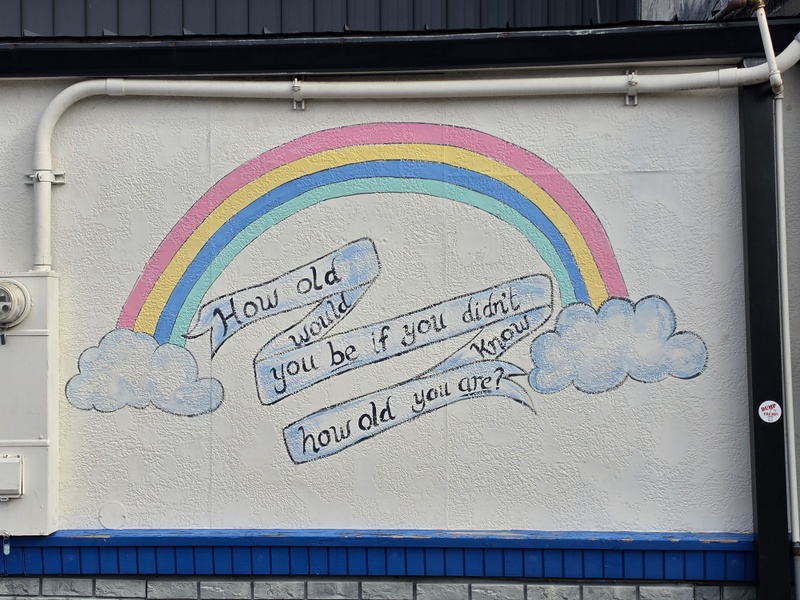 How old
would
you be if you didn't
know
how old you are?